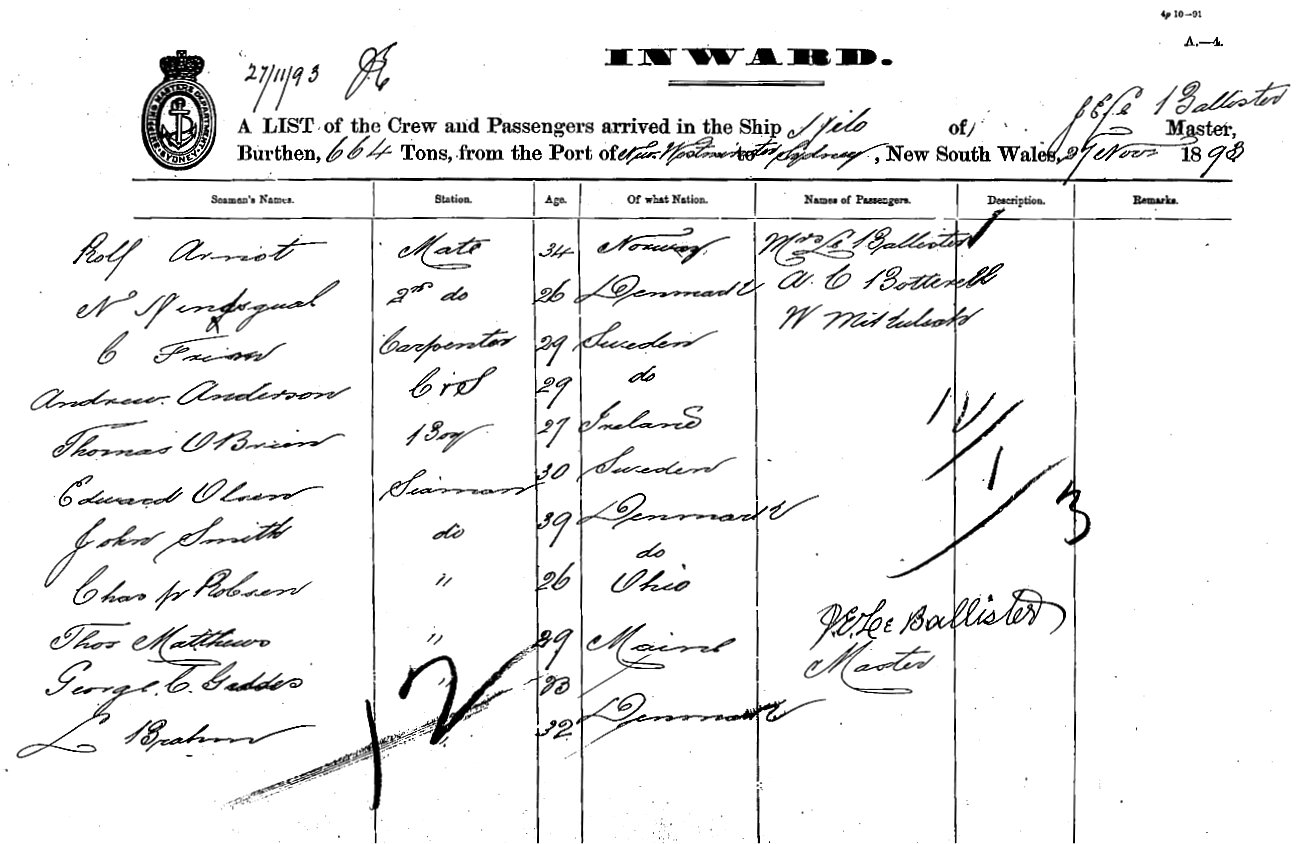 4p 10—91
A.—4.
INWARD.
27/11/93
SHIPPING MASTERS DEPARTMENT SYDNEY
A LIST of the Crew and Passengers arrived in the Ship of J E Le Ballister Master,
Burthen, 664 Tons, from the Port of New Westminster to Sydney, New South Wales, 27 Novr 1893
Seamen's Names. Station. Age. Of what Nation. Names of Passengers. Description. Remarks.
Rolf Arnot Mate 34 Norway Mrs Le Ballister
N 2nd do 26 Denmark A. C Botterell
C Carpenter 29 Sweden W
Andrew Anderson 29 do
Thomas O Brien Boy 27 Ireland
Edward Olsen Seaman 30 Sweden
John Smith do 39 Denmark
do
Chas Robsen " 26 Ohio
Thos Matthews " 29 Maine
George. C. Geddes " 33
L Brahm " 32 Denmark
J. E. Le Ballister
Master
12
1
3